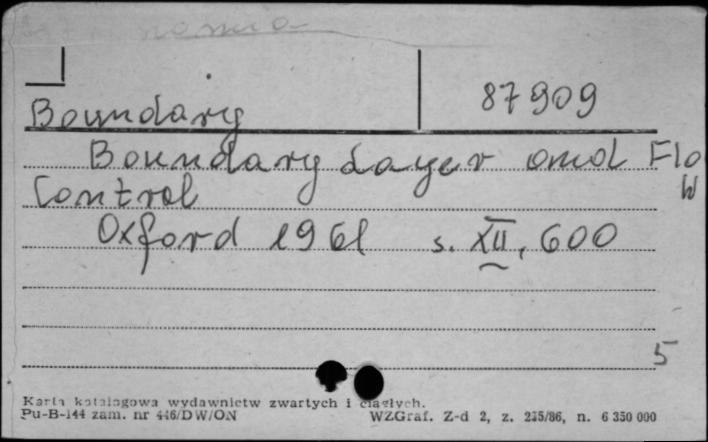 87909
Boundary
Boundary Layer and Flow
Control
Oxford 1961 s. XII, 600
5
Karta katalogowa wydawnictw zwartych i ciągłych.
Pu-B-144 zam. nr 446/DW/ON WZGraf. Z-d 2, z. 235/86, n. 6 350 000